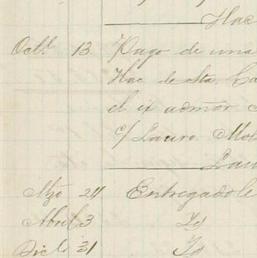 Hac
Octe 13 Pago de una
Hac de Sta. Ca
el ex admor
c/ Lauro Mol
Lau
Mzo 24 Entregadole
Abril 3 Id
Dic 31 Id